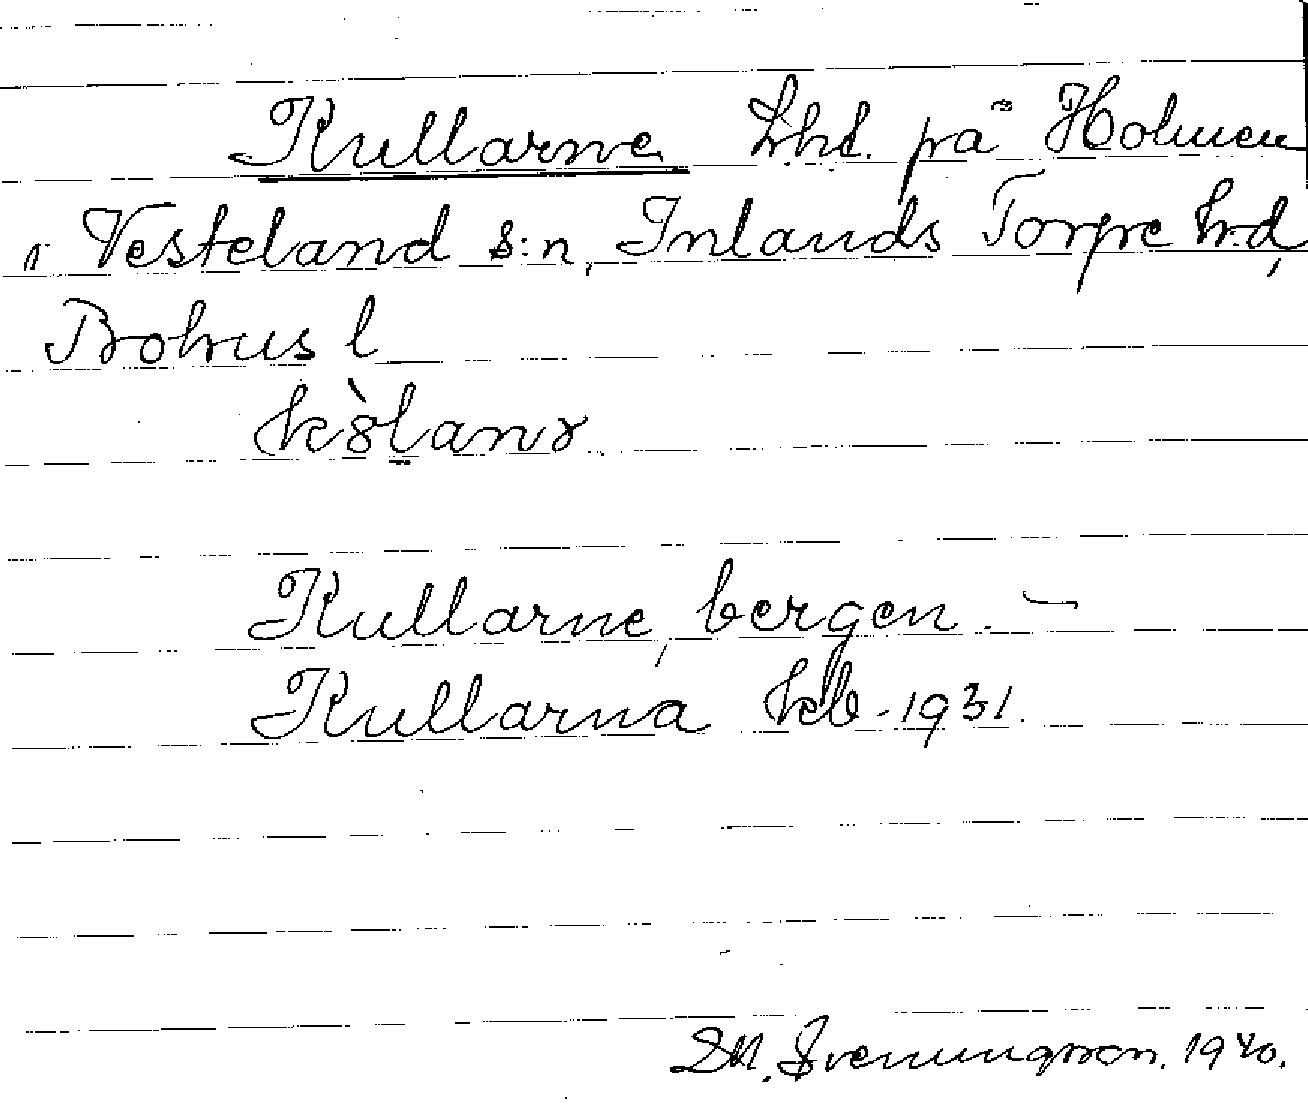 Kullarne Lhd. på Holmen
i Vesteland s:n, Inlands Torpe hd,
Bohus l
Kullarne, bergen. –
Kullarna kb. 1931.
Svenungsson. 1940.